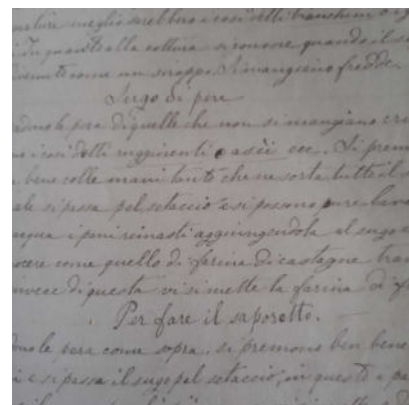 meglio sarebbero i così detti
In quanto alla cottura si conosce quando il s
divenuto come un siroppo. Si mangiano fredde.
Sugo di pere
le pera di quelle che non si mangiano cru
i così detti rugginenti o asii ecc. Si prem
bene colle mani tanto che ne sorta tutto il s
si passa pel setaccio e si possono pure lava
acqua i pani rimasti aggiungendola al sugo e
cuocere come quello di farina di castagne tran
invece di questa vi si mette la farina di f
Per fare il saporetto.
le pera come sopra, si premono ben bene
e si passa il sugo pel setaccio, in questo e pa